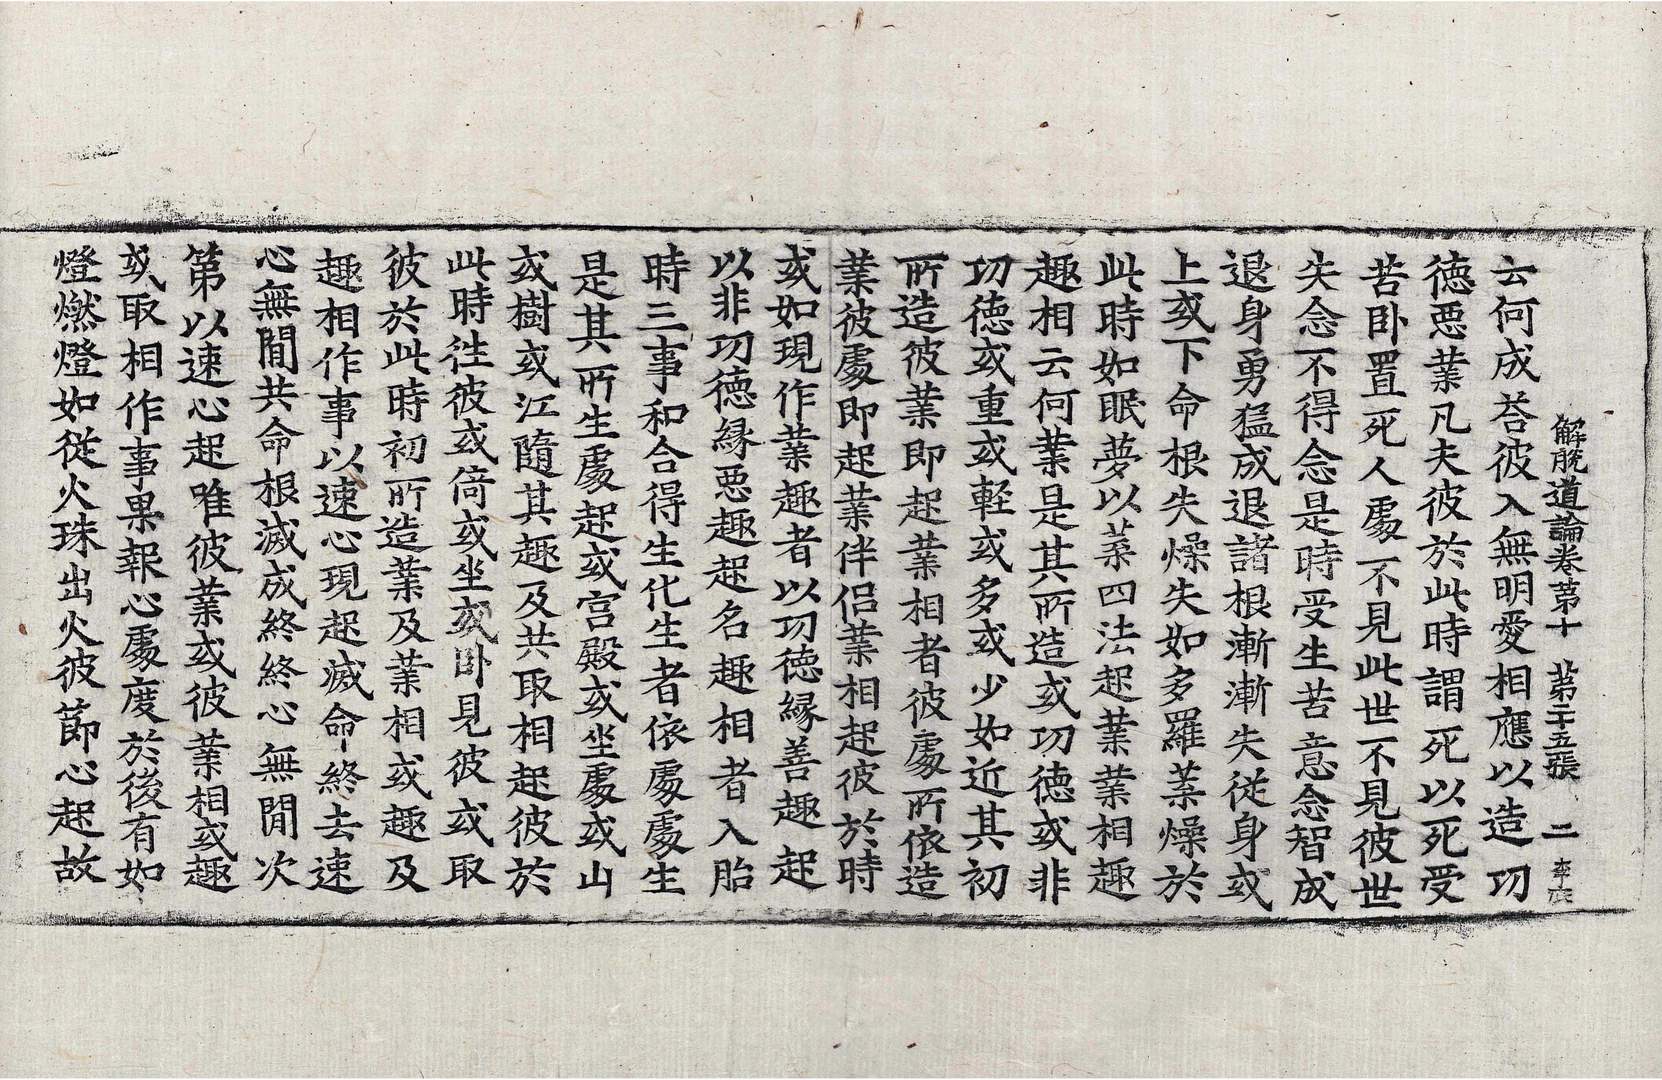 解脫道論卷第十 第二十五張 二
云何成荅彼入無明愛相應以造功
德惡業凡夫彼於此時謂死以死受
苦卧置死人處不見此世不見彼世
失念不得念是時受生苦意念智成
退身勇猛成退諸根漸漸失從身或
上或下命根失燥失如多羅葉燥於
此時如眠夢以業四法起業業相趣
趣相云何業是其所造或功德或非
功德或重或軽或多或少如近其初
所造彼業即起業相者彼處所依造
業彼處即起業伴侣業相起彼於時
或如現作業趣者以功德緣善趣起
以非功德緣惡趣起名趣相者入胎
時三事和合得生化生者依處處生
是其所生處起或宫殿或坐處或山
或樹或江隨其趣及共取相起彼於
此時徃彼或倚或坐或卧見彼或取
彼於此時初所造業及業相或趣及
趣相作事以速心現起滅命終去速
心無間共命根滅成終終心無間次
第以速心起唯彼業或彼業相或趣
或取相作事果報心處度於後有如
燈燃燈如從火珠出火彼節心起故